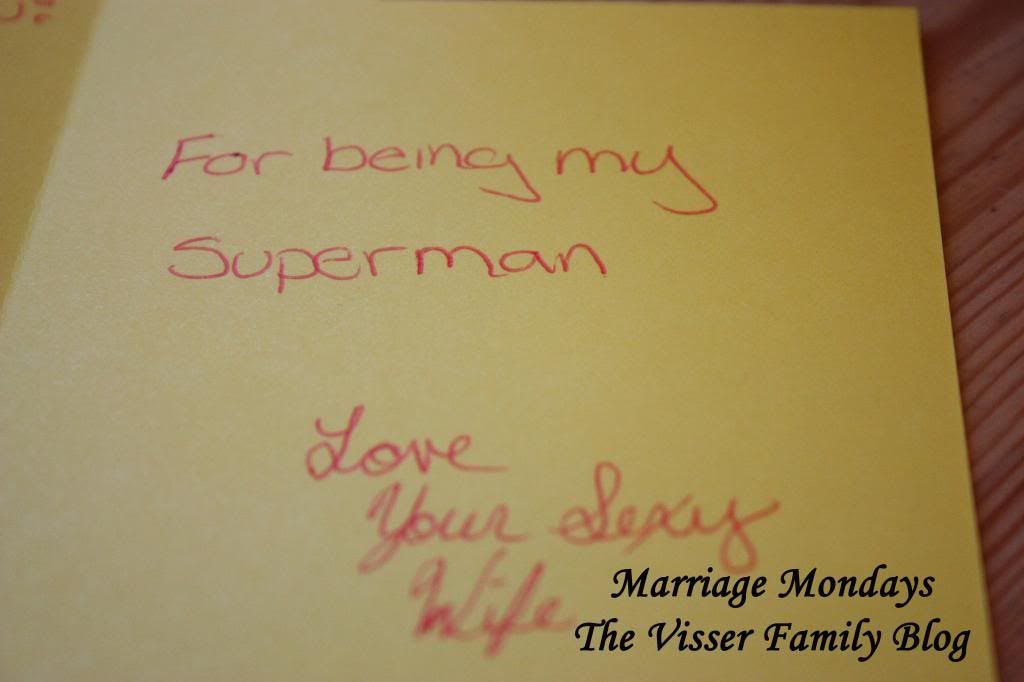 For being my
Superman
Love
Your Sexy
Wife
Marriage Mondays
The Visser Family Blog